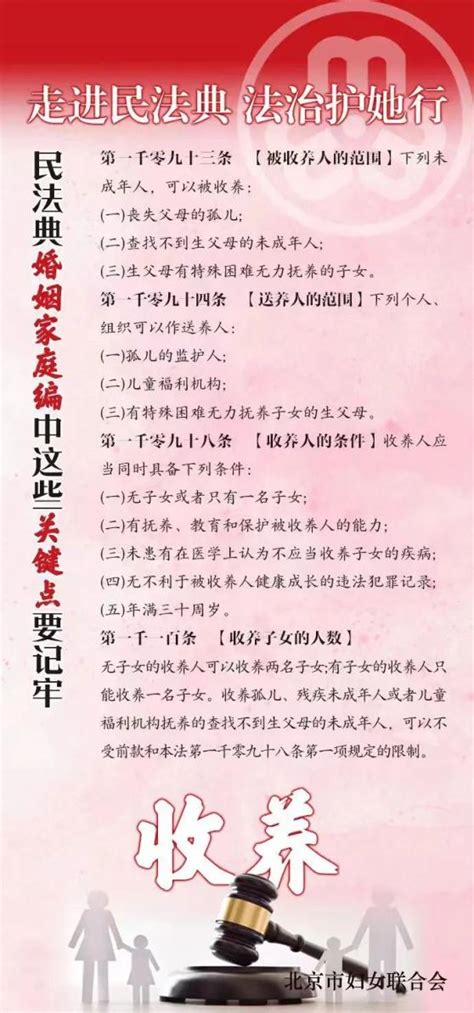 走进民法典 法治护她行
民法典婚姻家庭编中这些关键点要记牢
第一千零九十三条 【被收养人的范围】下列未
成年人，可以被收养：
(一)丧失父母的孤儿；
(二)查找不到生父母的未成年人；
(三)生父母有特殊困难无力抚养的子女。
第一千零九十四条 【送养人的范围】下列个人、
组织可以作送养人：
(一)孤儿的监护人；
(二)儿童福利机构；
(三)有特殊困难无力抚养子女的生父母。
第一千零九十八条 【收养人的条件】收养人应
当同时具备下列条件：
(一)无子女或者只有一名子女；
(二)有抚养、教育和保护被收养人的能力；
(三)未患有在医学上认为不应当收养子女的疾病；
(四)无不利于被收养人健康成长的违法犯罪记录；
(五)年满三十周岁。
第一千一百条 【收养子女的人数】
无子女的收养人可以收养两名子女;有子女的收养人只
能收养一名子女。收养孤儿、残疾未成年人或者儿童
福利机构抚养的查找不到生父母的未成年人，可以不
受前款和本法第一千零九十八条第一项规定的限制。
收养
北京市妇女联合会